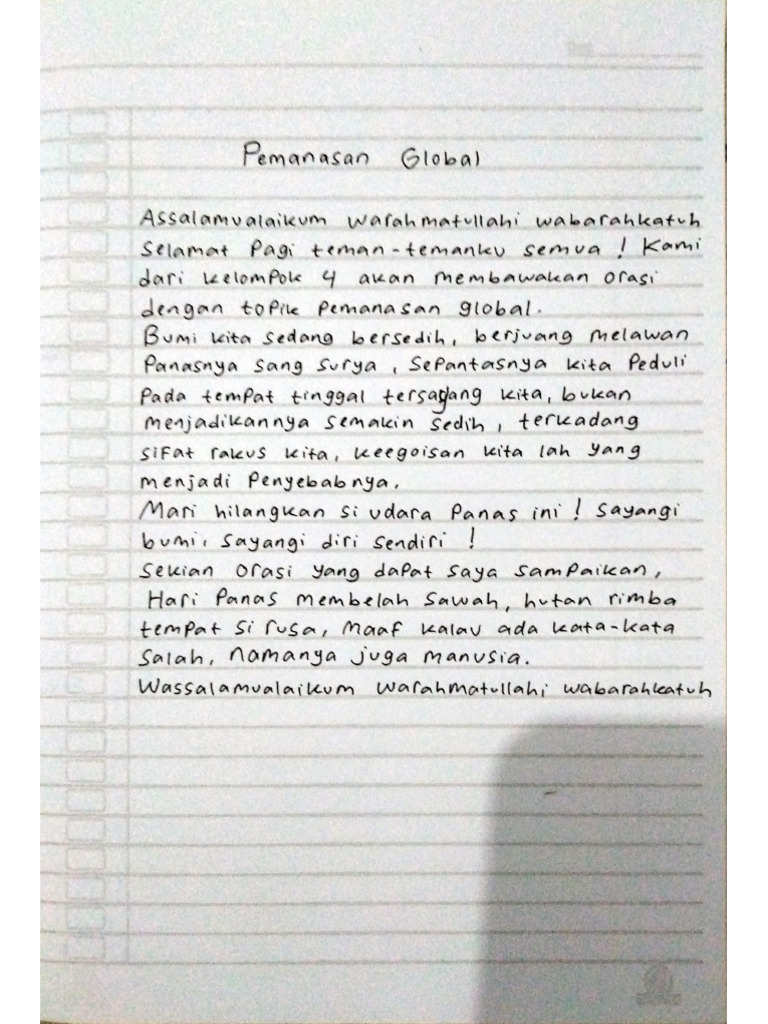 Pemanasan Global
Assalamualaikum warahmatullahi wabarahkatuh
Selamat Pagi teman-temanku semua ! Kami
dari kelompok 4 akan membawakan orasi
dengan topik pemanasan global.
Bumi kita sedang bersedih, berjuang melawan
Panasnya sang surya, sepantasnya kita Peduli
Pada tempat tinggal tersayang kita, bukan
menjadikannya semakin sedih, terkadang
sifat rakus kita, keegoisan kita lah yang
menjadi Penyebabnya.
Mari hilangkan si udara Panas ini ! Sayangi
bumi, sayangi diri sendiri !
Sekian orasi yang dapat saya sampaikan,
Hari Panas membelah sawah, hutan rimba
tempat si rusa, Maaf kalau ada kata-kata
salah, namanya juga manusia.
Wassalamualaikum warahmatullahi wabarahkatuh